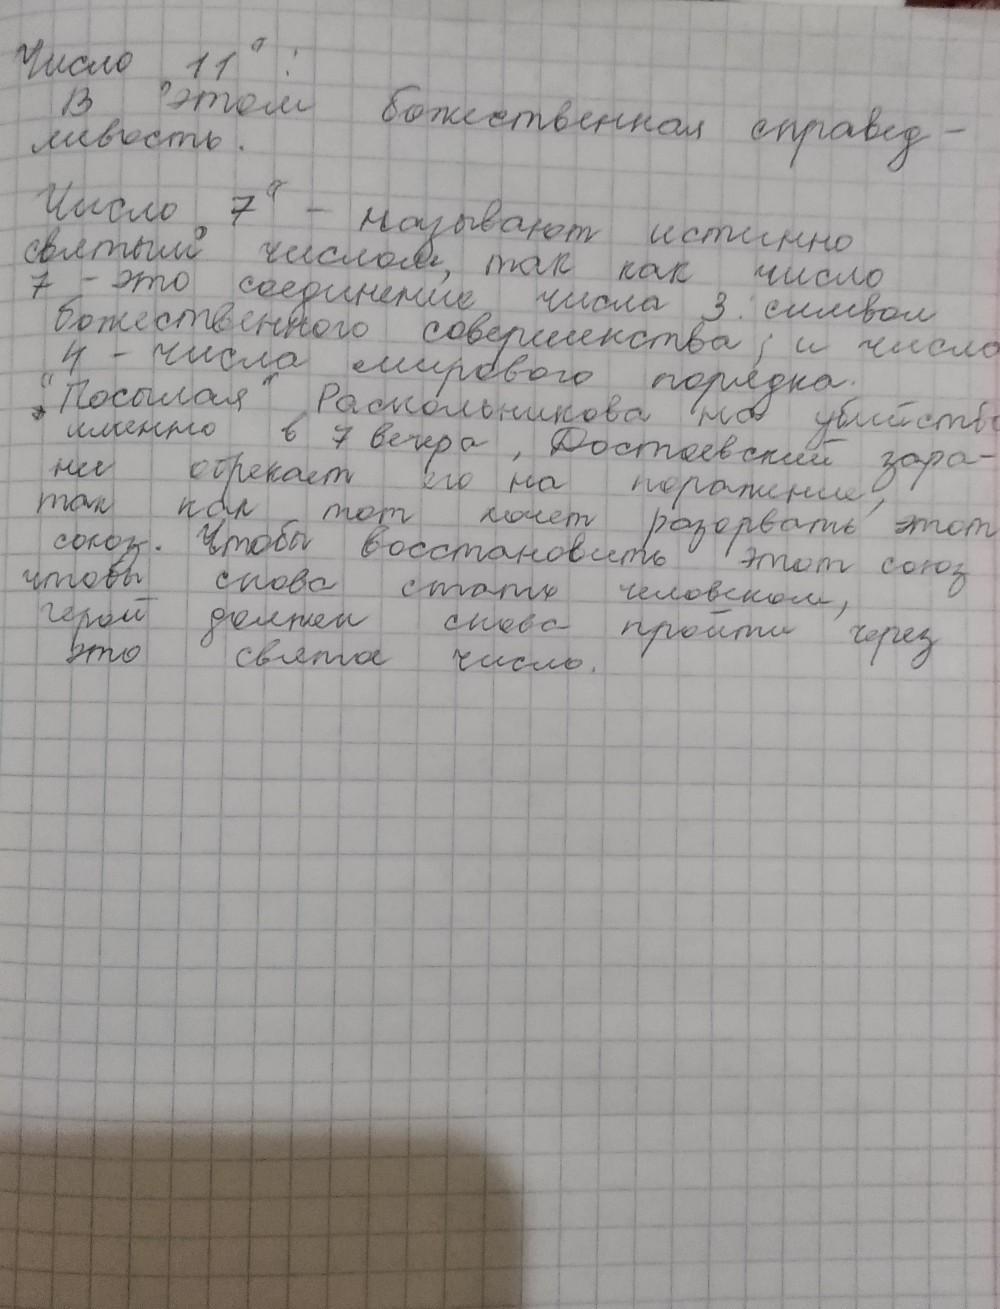 Число 11":
В этом божественная справед-
ливость.
Число 7" - называют истинно
святым" числом, так как число
7 - это соединение числа 3: символ
божественного совершенства, и число
4 - числа мирового порядка.
"Посылая" Раскольникова на убийств
именно в 7 вечера, Достоевский зара-
нее обрекает его на поражение,
так как тот хочет разорвать этот
союз. Чтобы восстановить этот союз
чтобы снова стать человеком,
герой должен снова пройти через
это святое число.